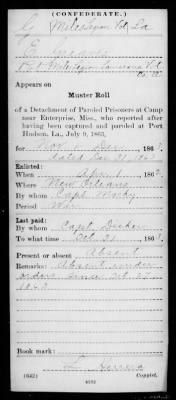 (CONFEDERATE.)
G Miles Legion Vol La
E
Appears on
Muster Roll
of a Detachment of Paroled Prisoners at Camp
near Enterprise, Miss., who reported after
having been captured and paroled at Port
Hudson, La., July 9, 1863,
for Nov & Dec , 1863
dated Dec 31, 1863
Enlisted:
When April 1 , 186
Where New Orleans
By whom Capt
Period War
Last paid:
By whom Capt
To what time Oct 31 , 1863
Present or absent Absent
Remarks: Absent under
orders since Oct 27
1863
Book mark:
L Herrera
(642) Copyist.